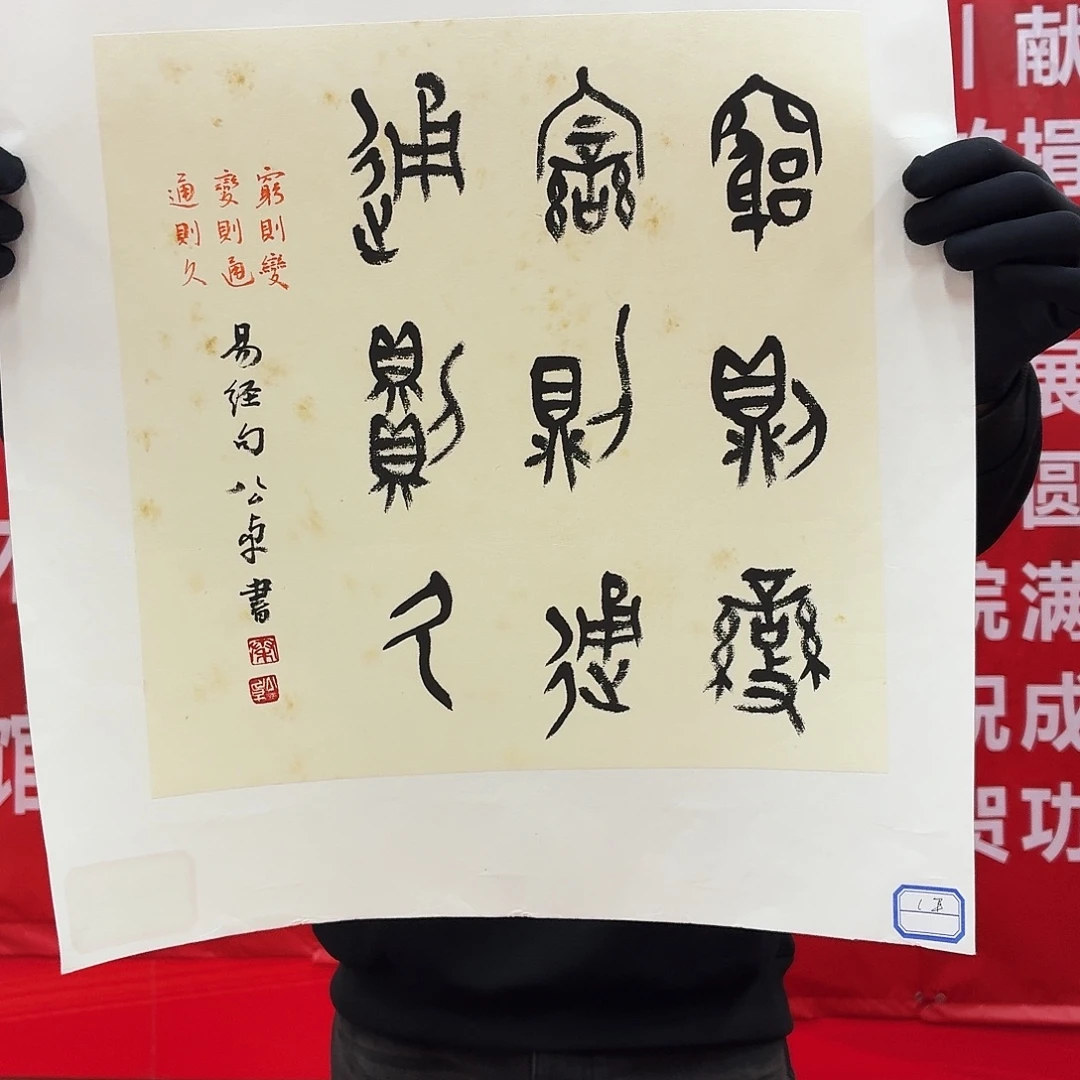 窮則變
變則通
通則久
窮則變
變則通
通則久
易经句 公卓書
献
展
圆满成功
院祝贺
馆